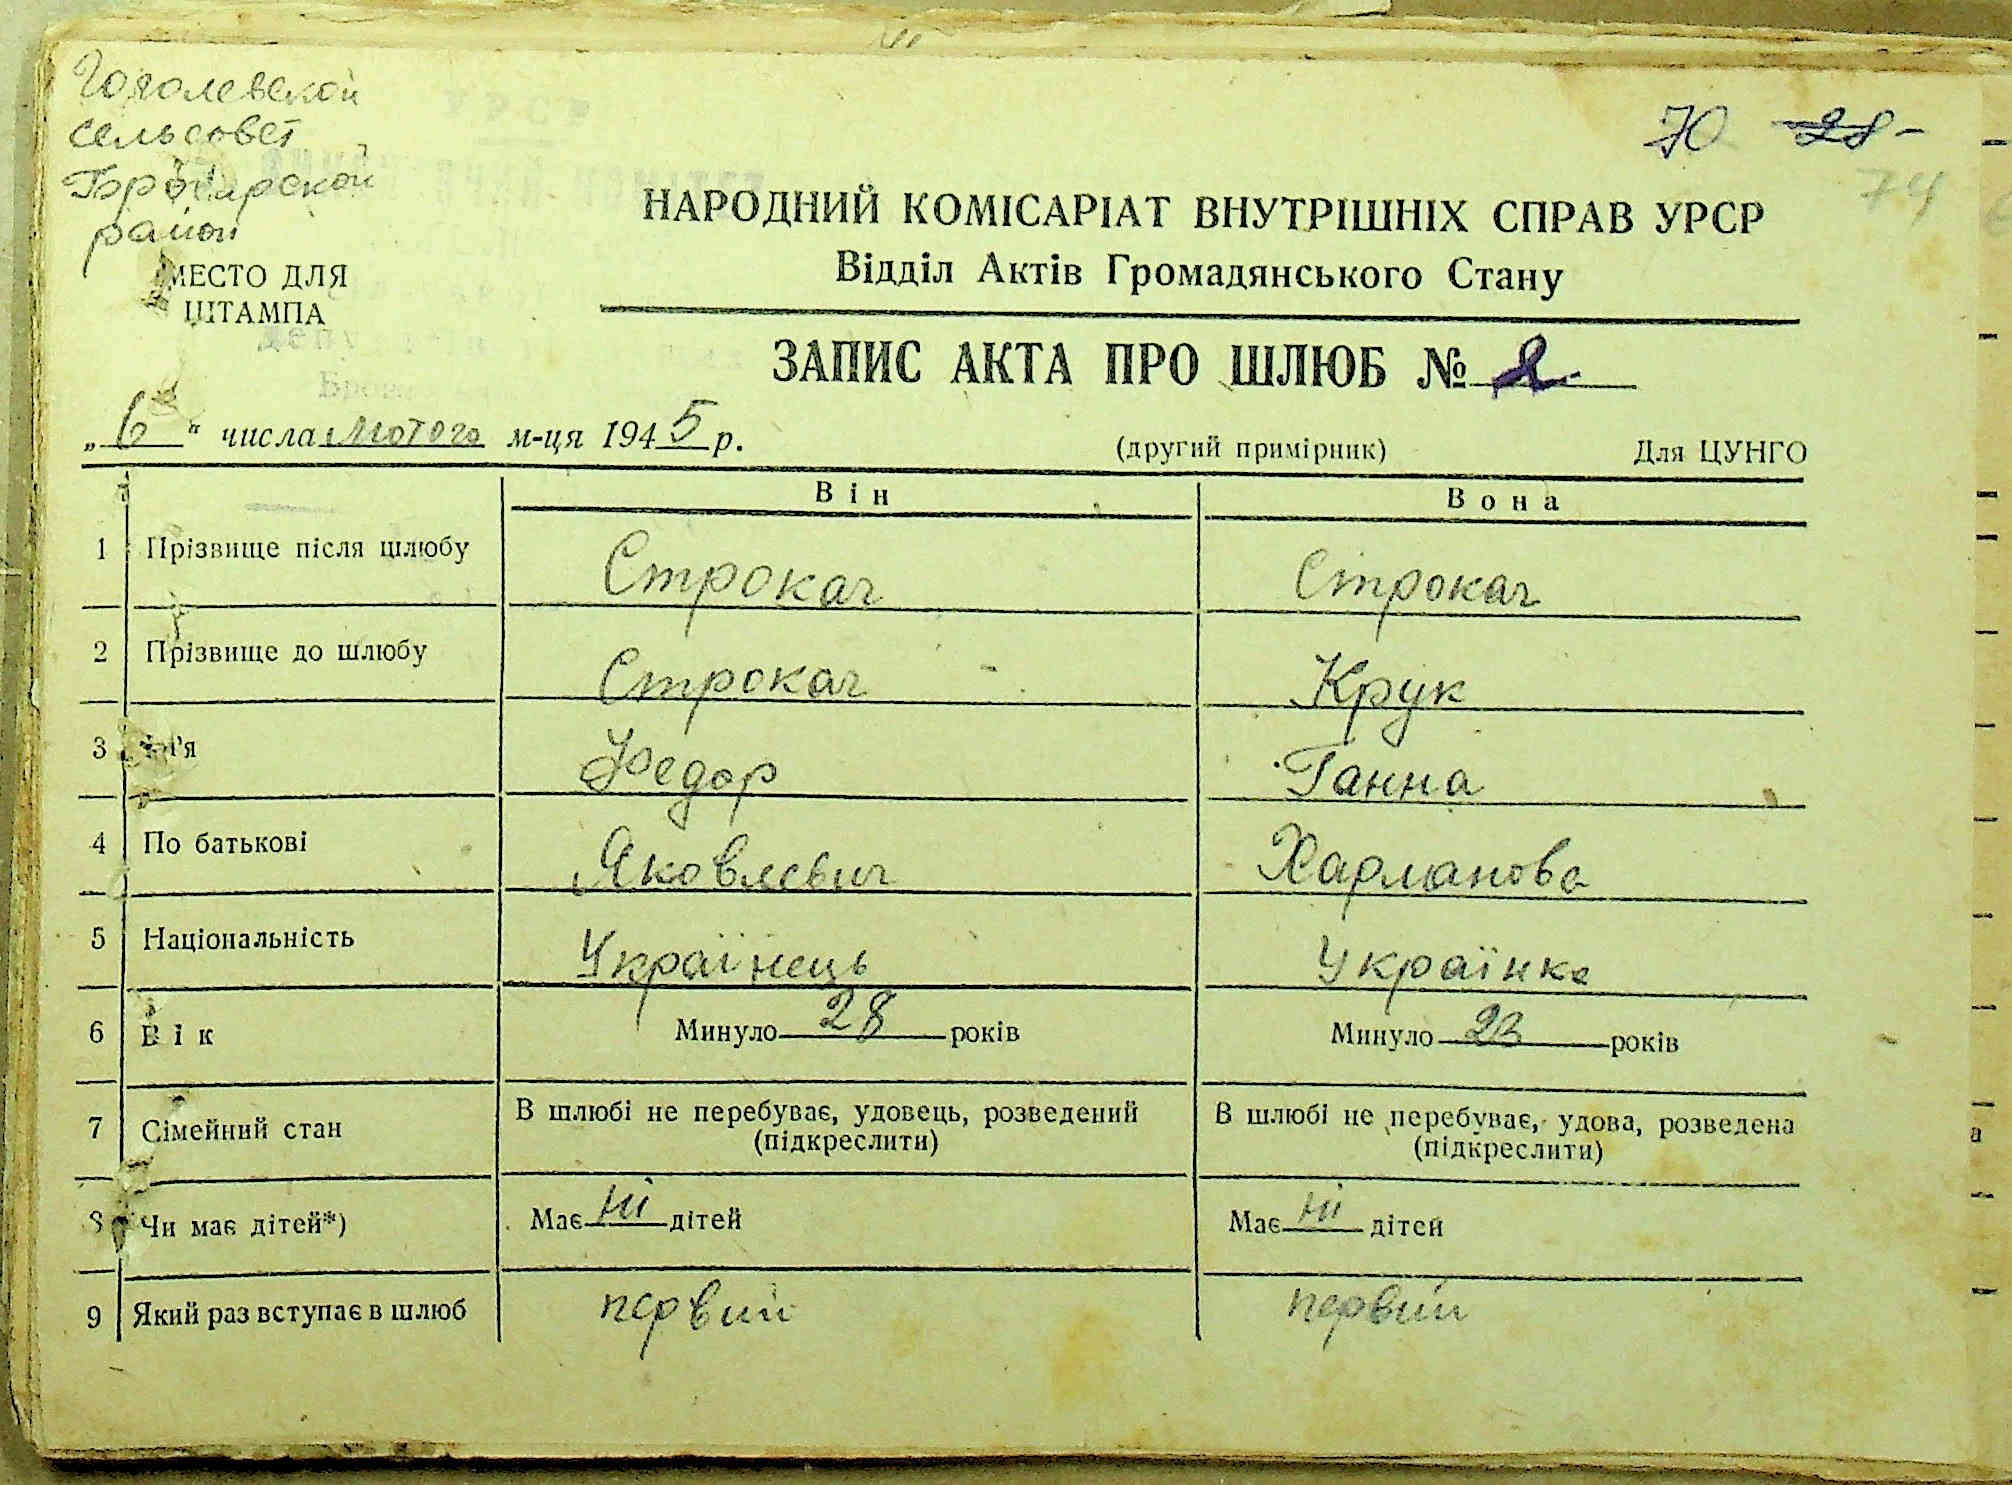 Гоголевской
сельсовет
Броварской
район
МЕСТО ДЛЯ
ШТАМПА
70 28 -
74
НАРОДНИЙ КОМІСАРІАТ ВНУТРІШНІХ СПРАВ УРСР
Відділ Актів Громадянського Стану
ЗАПИС АКТА ПРО ШЛЮБ № 2
„ 6 “ числа лютого м-ця 1945 р. (другий примірник) Для ЦУНГО
Він Вона
1 Прізвище після шлюбу Строкач Строкач
2 Прізвище до шлюбу Строкач Крук
3 Ім'я Федор Ганна
4 По батькові Яковлевич Харланова
5 Національність Українець Українка
6 Вік Минуло 28 років Минуло 23 років
7 Сімейний стан В шлюбі не перебуває, удовець, розведений В шлюбі не перебуває, удова, розведена
(підкреслити) (підкреслити)
8 Чи має дітей*) Має ні дітей Має ні дітей
9 Який раз вступає в шлюб первий первий